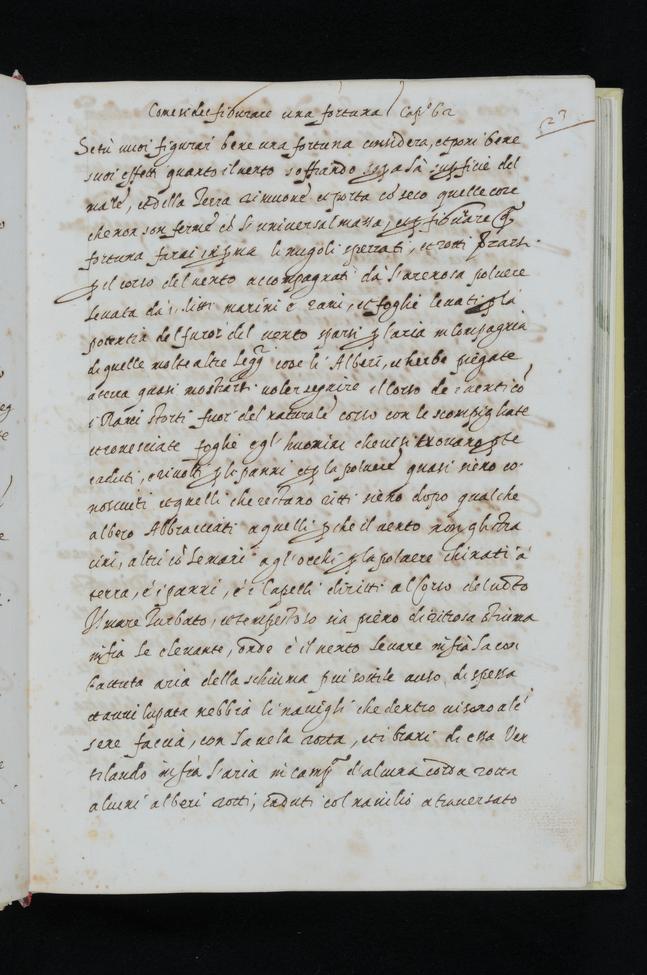 Come si dee figurare una fortuna Cap.º 62
Se tù vuoi figurar bene una fortuna considera, et poni bene
suoi effetti quanto il vento soffiando sopra la superficie del
mare, et della Terra rimuove, et porta co seco quelle cose
che non son ferme cò l'universal massa, et p figurare q.
fortuna farai in pma li nugoli spezzati, et rotti
p il corso del vento accompagnati da l'arenosa polvere
levata da i litti marini e rami, et foglie levati p la
potentia del furor del vento sparsi p l'aria in compagnia
di quelle molte altre legg. cose li Alberi, et herbe piegate
a terra quasi mostrarsi voler seguire il corso de i venti cò
i Rami storti fuor del naturale corso con le scompigliate
et rovesciate foglie e gl'huomini che vi si trovano p te
caduti, e rivolti p li panni et p la polvere quasi sieno co
nosciuti et quelli che restano ritti sieno dopo qualche
albero Abbracciati a quelli p che il vento non gli stra
cini, altri cò le mani a gl'occhi p la polvere chinati à
terra, e i panni, e i Capelli diritti al Corso del vèto
Il mare Turbato, et tempestoso sia pieno di ritrosa stiuma
infra le elevante, onde e il vento levare infra la con
battuta aria della schiuma piu sottile a uso di spessa
et aviluppata nebbia li navigli che dentro vi sono a le
sene faccia, con la vela rotta, et i brani di essa Ven
tilando infra l'aria in camp. d'alcuna corda rotta
alcuni alberi rotti, caduti col navilio atraversato